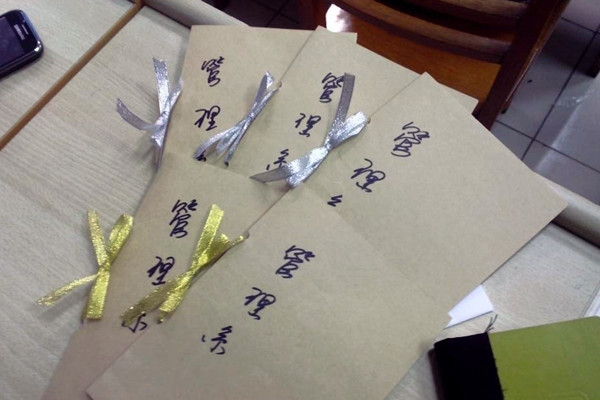 管理
管理系
管理
管理
管理系